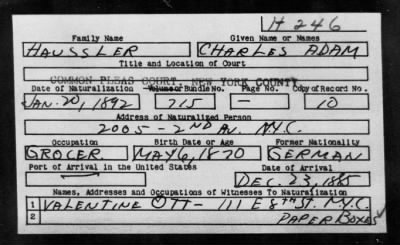 H 246
Family Name Given Name or Names
HAUSSLER CHARLES ADAM
Title and Location of Court
COMMON PLEAS COURT, NEW YORK COUNTY
Date of Naturalization Volume or Bundle No. Page No. Copy of Record No.
JAN. 20, 1892 715 — 10
Address of Naturalized Person
2005 - 2ND AV. N.Y.C.
Occupation Birth Date or Age Former Nationality
GROCER MAY 6, 1870 GERMAN
Port of Arrival in the United States Date of Arrival
DEC. 23, 1885
Names, Addresses and Occupations of Witnesses To Naturalization
1 VALENTINE OTT - 111 E 8TH ST. N.Y.C.
2 PAPER BOXES